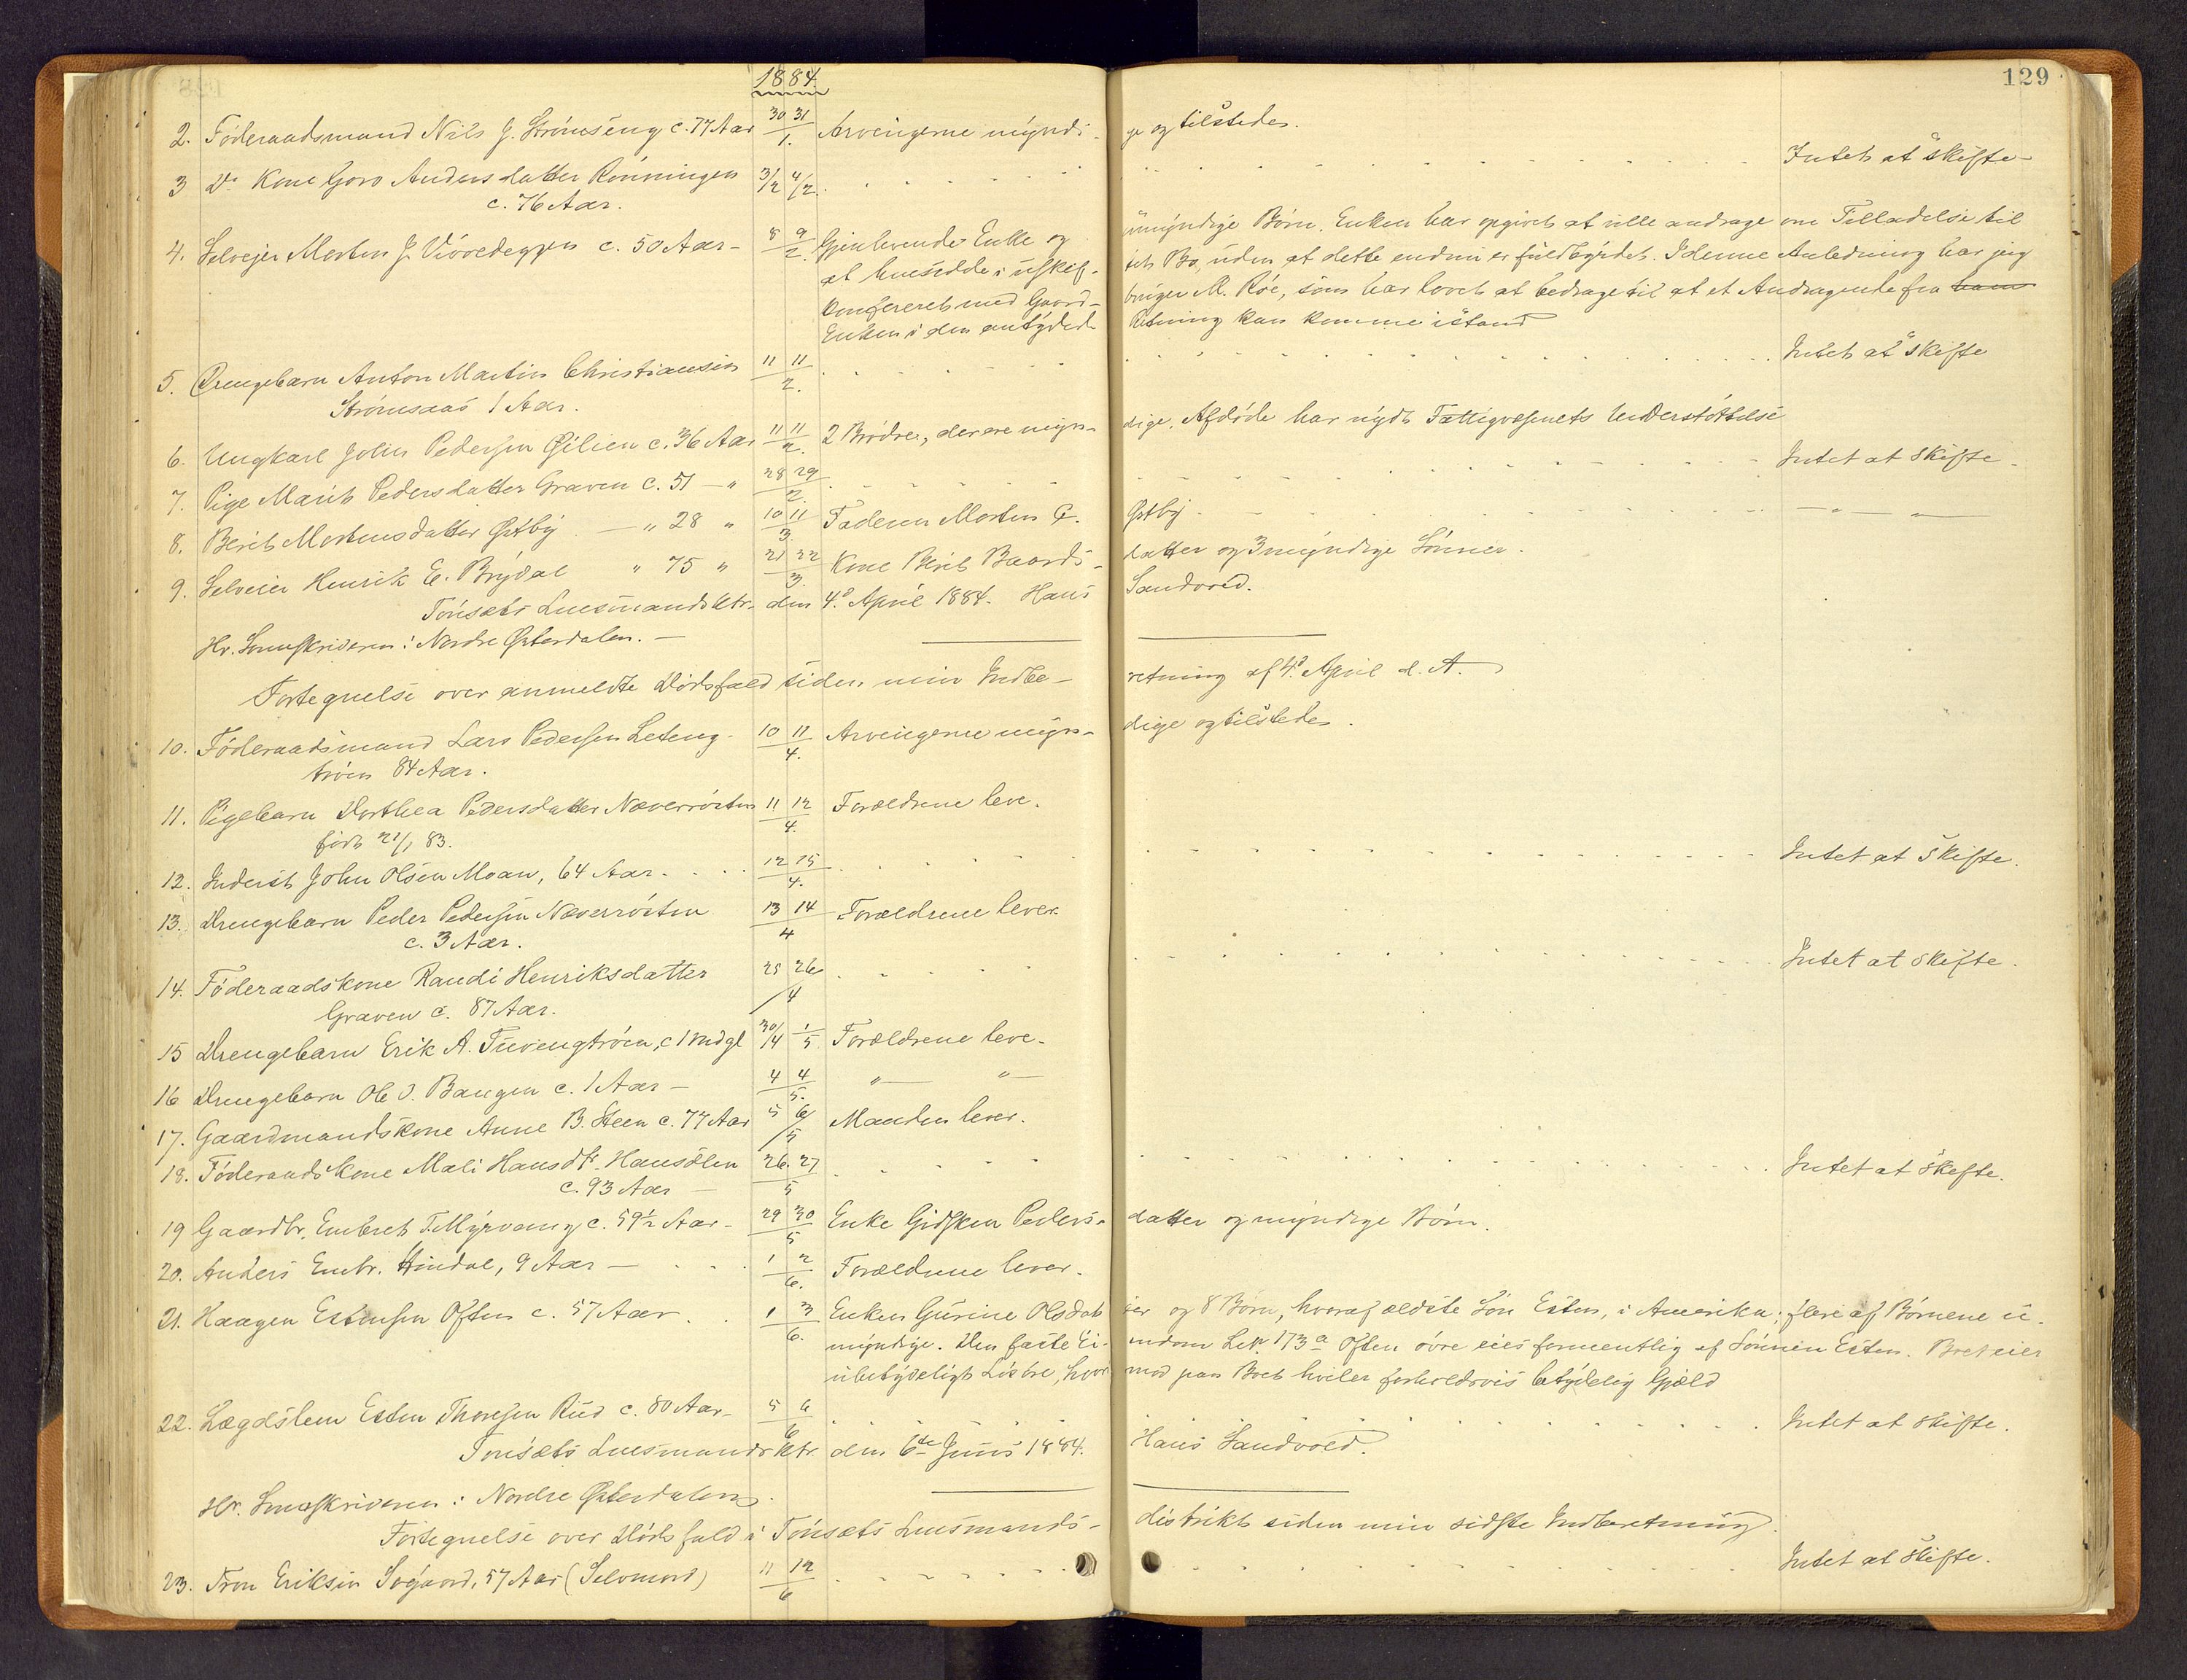 129
1884.
2. Föderaadsmand Nils J. Strömseng c. 77 Aar 30 31/1. Arvingerne myndi- ge og tilstede.
3 Do Kone Goro Andersdatter Rönningen 3/2 4/2. Intet at skifte
c. 76 Aar.
4. Selveier Morten J. c. 50 Aar- 8 9/2. Gjenlevende Enke og umyndige Börn. Enken har opgivet at ville andrage om Tilladelse til
at hensidde i uskif- tet Bo, uden at dette endnu er fuldbyrdet. I denne Anledning har jeg
konfereret med Gaard- bruger M. Röe, som har lovet at bedrage til at et Andragende fra ham
Enken i den antydede Retning kan komme istand
5. Drengebarn Anton Martin Christiansen 11 11/2. Intet at skifte
Strömsaas 1 Aar.
6. Ungkarl John Pedersen Öilien c. 36 Aar 11 11/2. 2 Brödre, der ere myn- dige. Afdöde har nydt Fattigvæsenets Understöttelse
7. Pige Marit Pedersdatter Graven c. 51 - " 28 29/2. Intet at skifte.
8. Berit Mortensdatter Östby - " 28 " 10 11/3. Faderen Morten E. Östby. - " - " -
9. Selveier Henrik E. Brydal " 75 " 21 22/3. Kone Berit Baards- datter og 3 myndige Sönner.
Tönsets Lensmandsktr. den 4de April 1884. Hans Sandvold.
Hr. Sorenskriveren i Nordre Österdalen. -
Fortegnelse over anmeldte Dödsfald siden min Indbe- retning af 4de April d. A.
10. Föderaadsmand Lars Pedersen Leteng- 10 11/4. Arvingerne myn- dige og tilstede.
tröen 84 Aar.
11. Pigebarn Dorthea Pedersdatter Næverrösten 11 12/4. Forældrene leve.
födt 21/1 83.
12. Inderst John Olsen Moan, 64 Aar. 12 15/4. Intet at skifte.
13. Drengebarn Peder Pedersen Næverrösten 13 14/4 Forældrene lever.
c. 3 Aar.
14. Föderaadskone Randi Henriksdatter 25 26/4 Intet at skifte.
Graven c. 87 Aar.
15 Drengebarn Erik A. Tuvengtröen, c 1 mdgl 30/4 1/5 Forældrene leve.
16 Drengebarn Ole O. Baugen c. 1 Aar - 4 4/5. " - " -
17. Gaardmandskone Anne B. Steen c. 74 Aar 5 6/5 Manden lever.
18. Föderaadskone Mali Hansdtr. Hansölen 26. 27/5 Intet at skifte.
c. 93 Aar -
19 Gaardbr. Embret T. Myrvang c. 59½ Aar- 29 30/5 Enke Gidsken Peders- datter og myndige Börn.
20. Anders Embr. Hindal, 9 Aar - 1 2/6. Forældrene lever.
21. Haagen Estensen Often c. 57 Aar 1 3/6. Enken Gurine Olsdat- ter og 8 Börn, hvoraf ældste Sön Esten, i Amerika; flere af Börnene u-
myndige. Den faste Ei- endom LNr 173a Often övre eies formentlig af Sönnen Esten. Boet eier
ubetydeligt Lösöre, hvor- mod paa Boet hviler forholdsvis betydelig Gjæld
22. Lægdslem Esten Thoresen Rud c. 80 Aar- 5 6/6 Intet at skifte.
Tönsets Lensmandsktr. den 6te Juni 1884. Hans Sandvold.
Hr. Sorenskriveren i Nordre Österdalen.
Fortegnelse over Dödsfald i Tönsets Lensmands- distrikt siden min sidste Indberetning.
23. Tron Eriksen Sögaard, 57 Aar (Selvmord) 11 12/6 Intet at skifte.